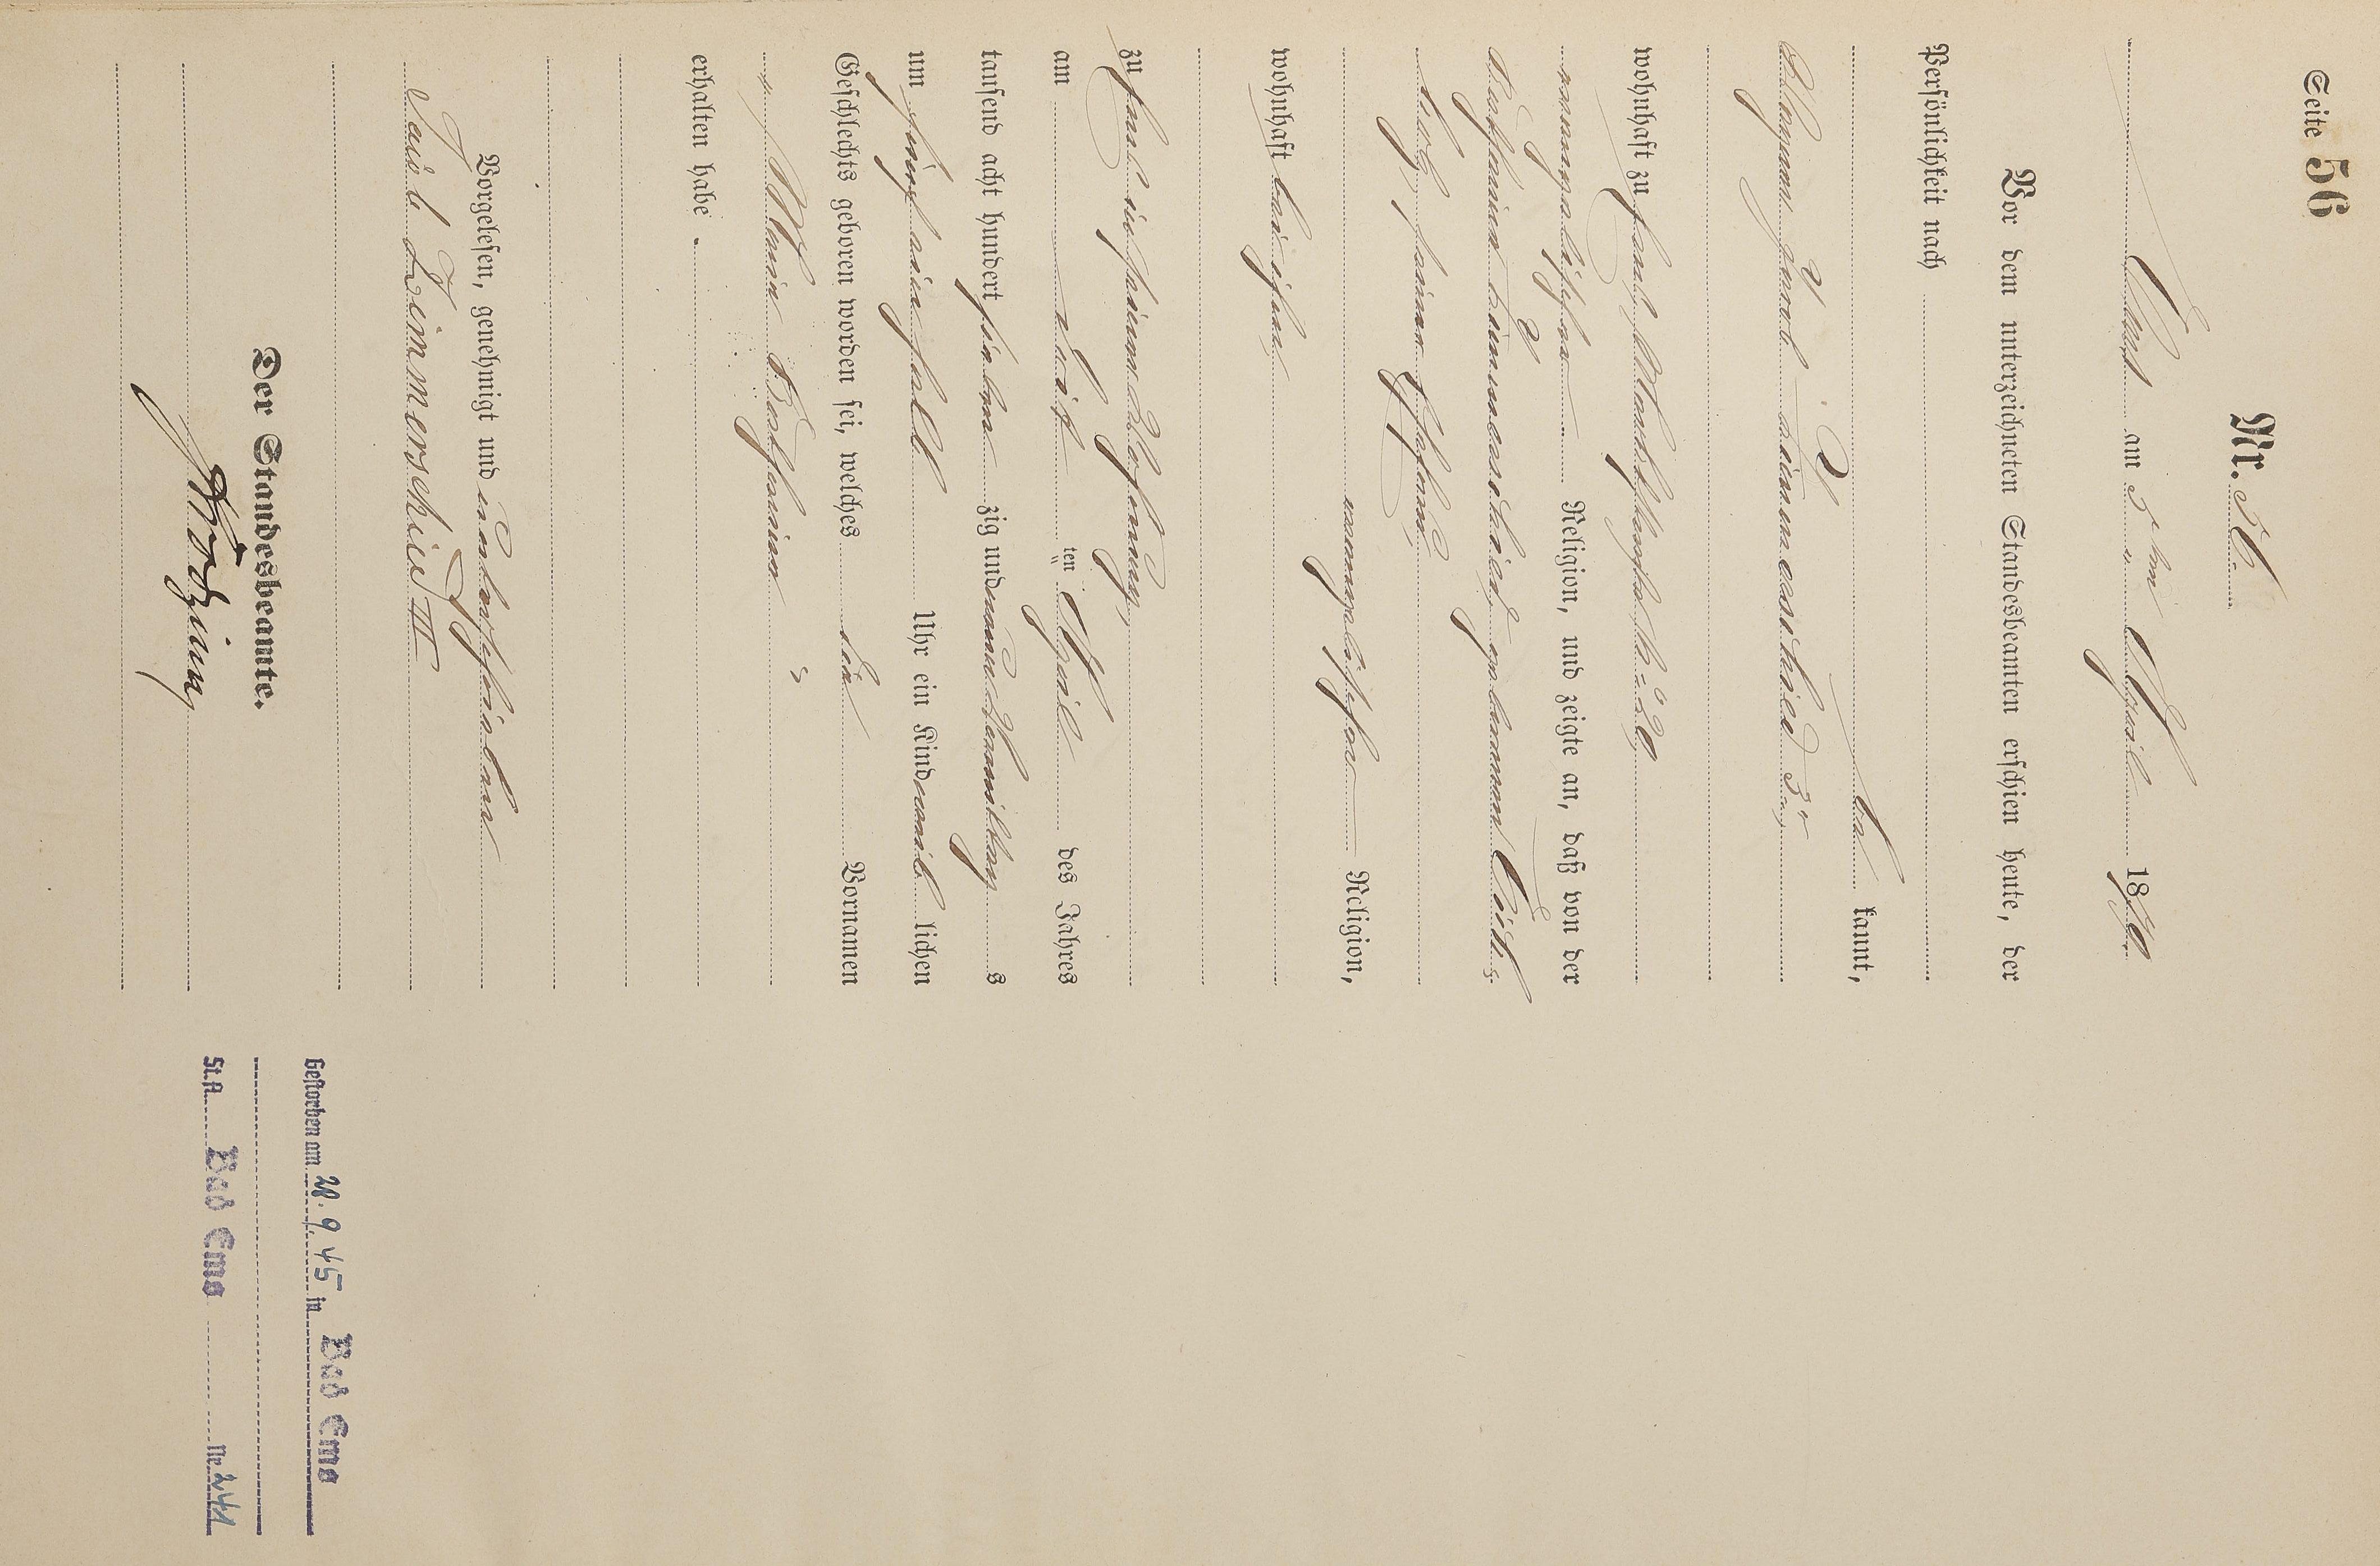 Seite 56
Nr. 56.
Ems am 5ten April 1879
Vor dem unterzeichneten Standesbeamten erschien heute, der
Persönlichkeit nach
be kannt,
Jacob Zimmerschied 3r,
wohnhaft zu Ems,
evangelischer Religion, und zeigte an, daß von der
Katharina Zimmerschied, geborenen
seiner Ehefrau,
evangelischer Religion,
wohnhaft bei ihm,
zu Ems in seiner Wohnung,
am ten April des Jahres
tausend acht hundert siebenzig und neun Vormittags
um fünf ein halb Uhr ein Kind weiblichen
Geschlechts geboren worden sei, welches die Vornamen
Maria Katharina
erhalten habe.
Vorgelesen, genehmigt und unterschrieben
Jacob Zimmerschied III
Der Standesbeamte.
Gestorben am 28. 9. 45 in Bad Ems
St.A. Bad Ems Nr. 2441